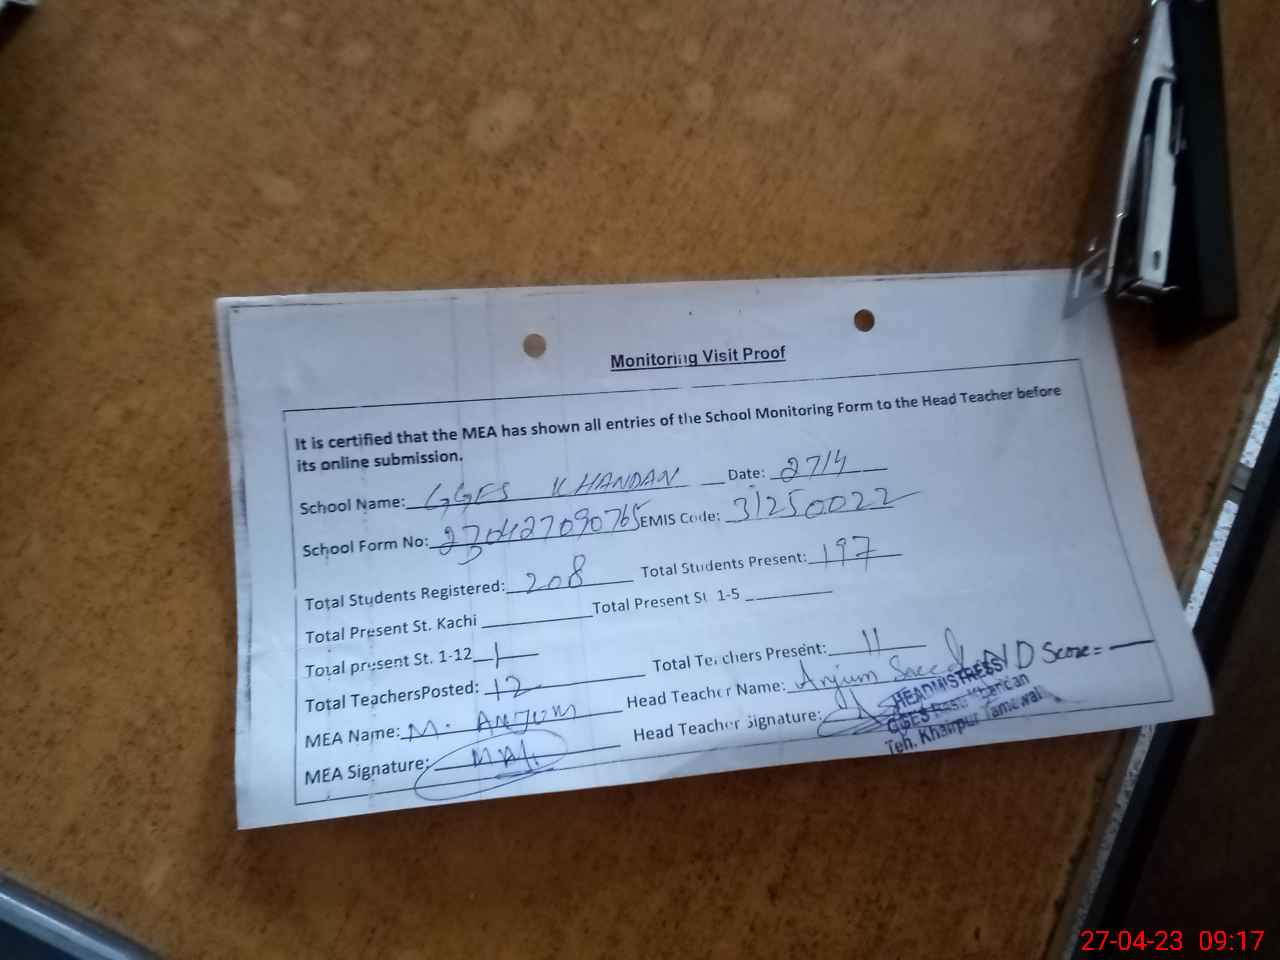 Monitoring Visit Proof
It is certified that the MEA has shown all entries of the School Monitoring Form to the Head Teacher before
its online submission.
School Name: GGES KHANDAN Date: 27/4
School Form No: 270427090765 EMIS Code: 31250022
Total Students Registered: 208 Total Students Present: 197
Total Present St. Kachi Total Present St 1-5
Total present St. 1-12
Total TeachersPosted: 12 Total Teachers Present: 11
MEA Name: M. ANJUM Head Teacher Name: Anjum Saeed
D Score = —
MEA Signature: Head Teacher Signature:
HEADMISTRESS
GGES Khandan
Teh. Khairpur Tamewali
27-04-23 09:17